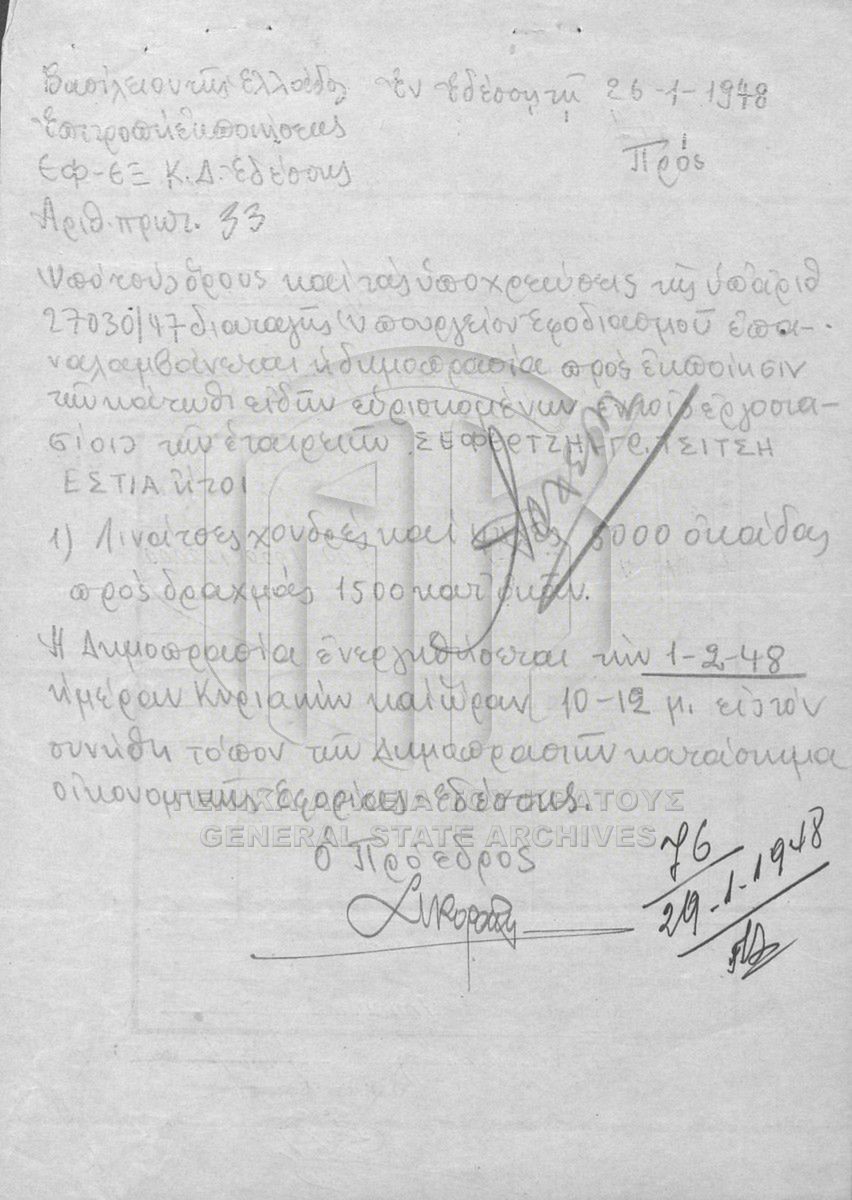 Βασίλειον της Ελλάδος Εν Εδέσση τη 26-1-1948
Επιτροπή Εκποιήσεως
Εφ-εξ Κ.Δ. Εδέσσης Πρός
Αριθ. πρωτ. 33
Υπό τούς όρους καί τάς υποχρεώσεις της υπ' αριθ
27030/47 διαταγής Υπουργείον Εφοδιασμού επα-
ναλαμβάνεται η δημοπρασία πρός εκποίησιν
των κάτωθι ειδών ευρισκομένων εν τοίς εργοστα-
σίοις των εταιρειών ΣΕΦΕΡΤΖΗ ΓΡ. ΤΣΙΤΣΗ
ΕΣΤΙΑ ήτοι
1) Λινάτσες χονδρές καί 5000 οκάδας
πρός δραχμάς 1500 κατ' οκάν.
Η Δημοπρασία ενεργηθήσεται την 1-2-48
ημέραν Κυριακήν καί ώραν 10-12 μ. είς τόν
συνήθη τόπον των Δημοπρασιών κατάστημα
οικονομικής Εφορίας Εδέσσης.
ΓΕΝΙΚΑ ΑΡΧΕΙΑ ΤΟΥ ΚΡΑΤΟΥΣ
GENERAL STATE ARCHIVES
Ο Πρόεδρος
76
29-1-1948